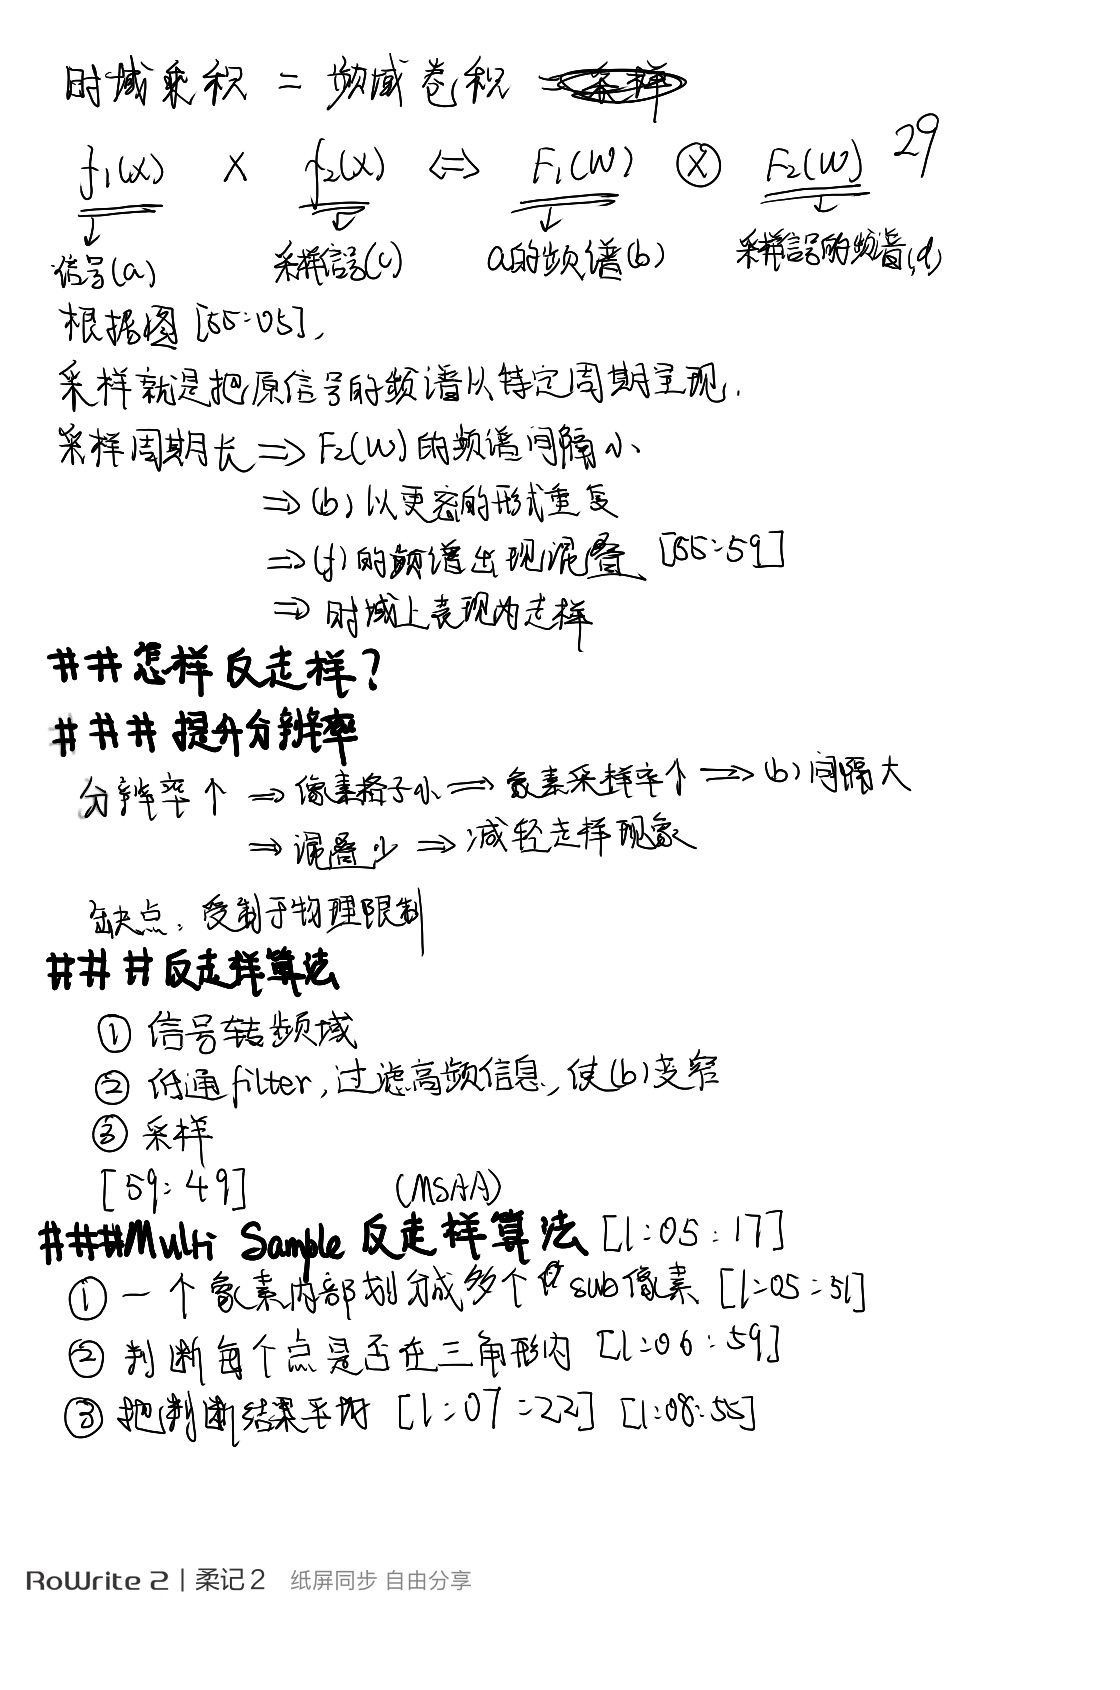 时域乘积 = 频域卷积
29
f₁(x) × f₂(x) ⇔ F₁(W) ⊗ F₂(W)
信号(a) 采样信号(c) a的频谱(b) 采样信号的频谱(d)
根据图 [55:05],
采样就是把原信号的频谱以特定周期呈现.
采样周期长 ⇒ F₂(W)的频谱间隔小、
⇒ (b)以更密的形式重复
⇒ (f)的频谱出现混叠、[55:59]
⇒ 时域上表现为走样
##怎样反走样?
###提升分辨率
分辨率↑ ⇒ 像素格子小 ⇒ 像素采样率↑ ⇒ (b)间隔大
⇒ 混叠少 ⇒ 减轻走样现象
缺点:受制于物理限制
###反走样算法
① 信号转频域
② 低通filter,过滤高频信息,使(b)变窄
③ 采样
[59:49] (MSAA)
###Multi Sample 反走样算法 [1:05:17]
① 一个像素内部划分成多个sub像素 [1:05:51]
② 判断每个点是否在三角形内 [1:06:59]
③ 把判断结果平均 [1:07:22] [1:08:55]
RoWrite 2 | 柔记2 纸屏同步 自由分享